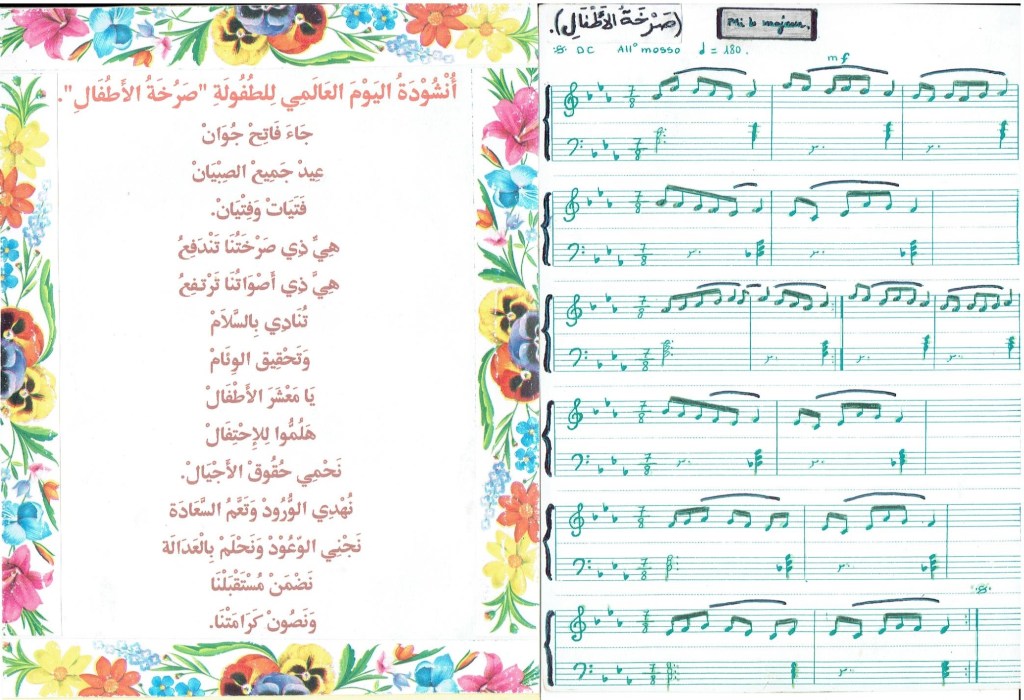 أُنْشُوْدَةُ اليَوْمَ العَالَمِي لِلطُفُولَةِ "صَرْخَةُ الأَطْفَالِ".
جَاءَ فَاتِحْ جُوَانْ
عِيدْ جَمِيعْ الصِبْيَان
فَتَيَاتْ وَفِتْيَانْ.
هِيَّ ذِي صَرْخَتُنَا تَنْدَفِعُ
هِيَّ ذِي أَصْوَاتُنَا تَرْتفِعُ
تُنَادِي بِالسَّلاَمْ
وَتَحْقِيق الوِئَامْ
يَا مَعْشَرَ الأَطْفَال
هَلُمُّوا لِلإِحْتِفَالْ
نَحْمِي حُقُوقْ الأَجْيَالْ.
نُهْدِي الوُّرُودْ وَتَعَّمُ السَّعَادَة
نَجْنِي الوّعُوْدْ وَنَحْلَمْ بِالْعَدَالَة
نَضْمَنْ مُسْتَقْبَلْنَا
وَنَصُونْ كَرَامَتْنَا.
(صَرْخَةُ الأَطْفَالِ).
Mi b majeur.
DC All° mosso ♩ = 180.
mf
7/8
7/8
7/8
7/8
7/8
7/8
7/8
7/8
7/8
7/8
7/8
7/8